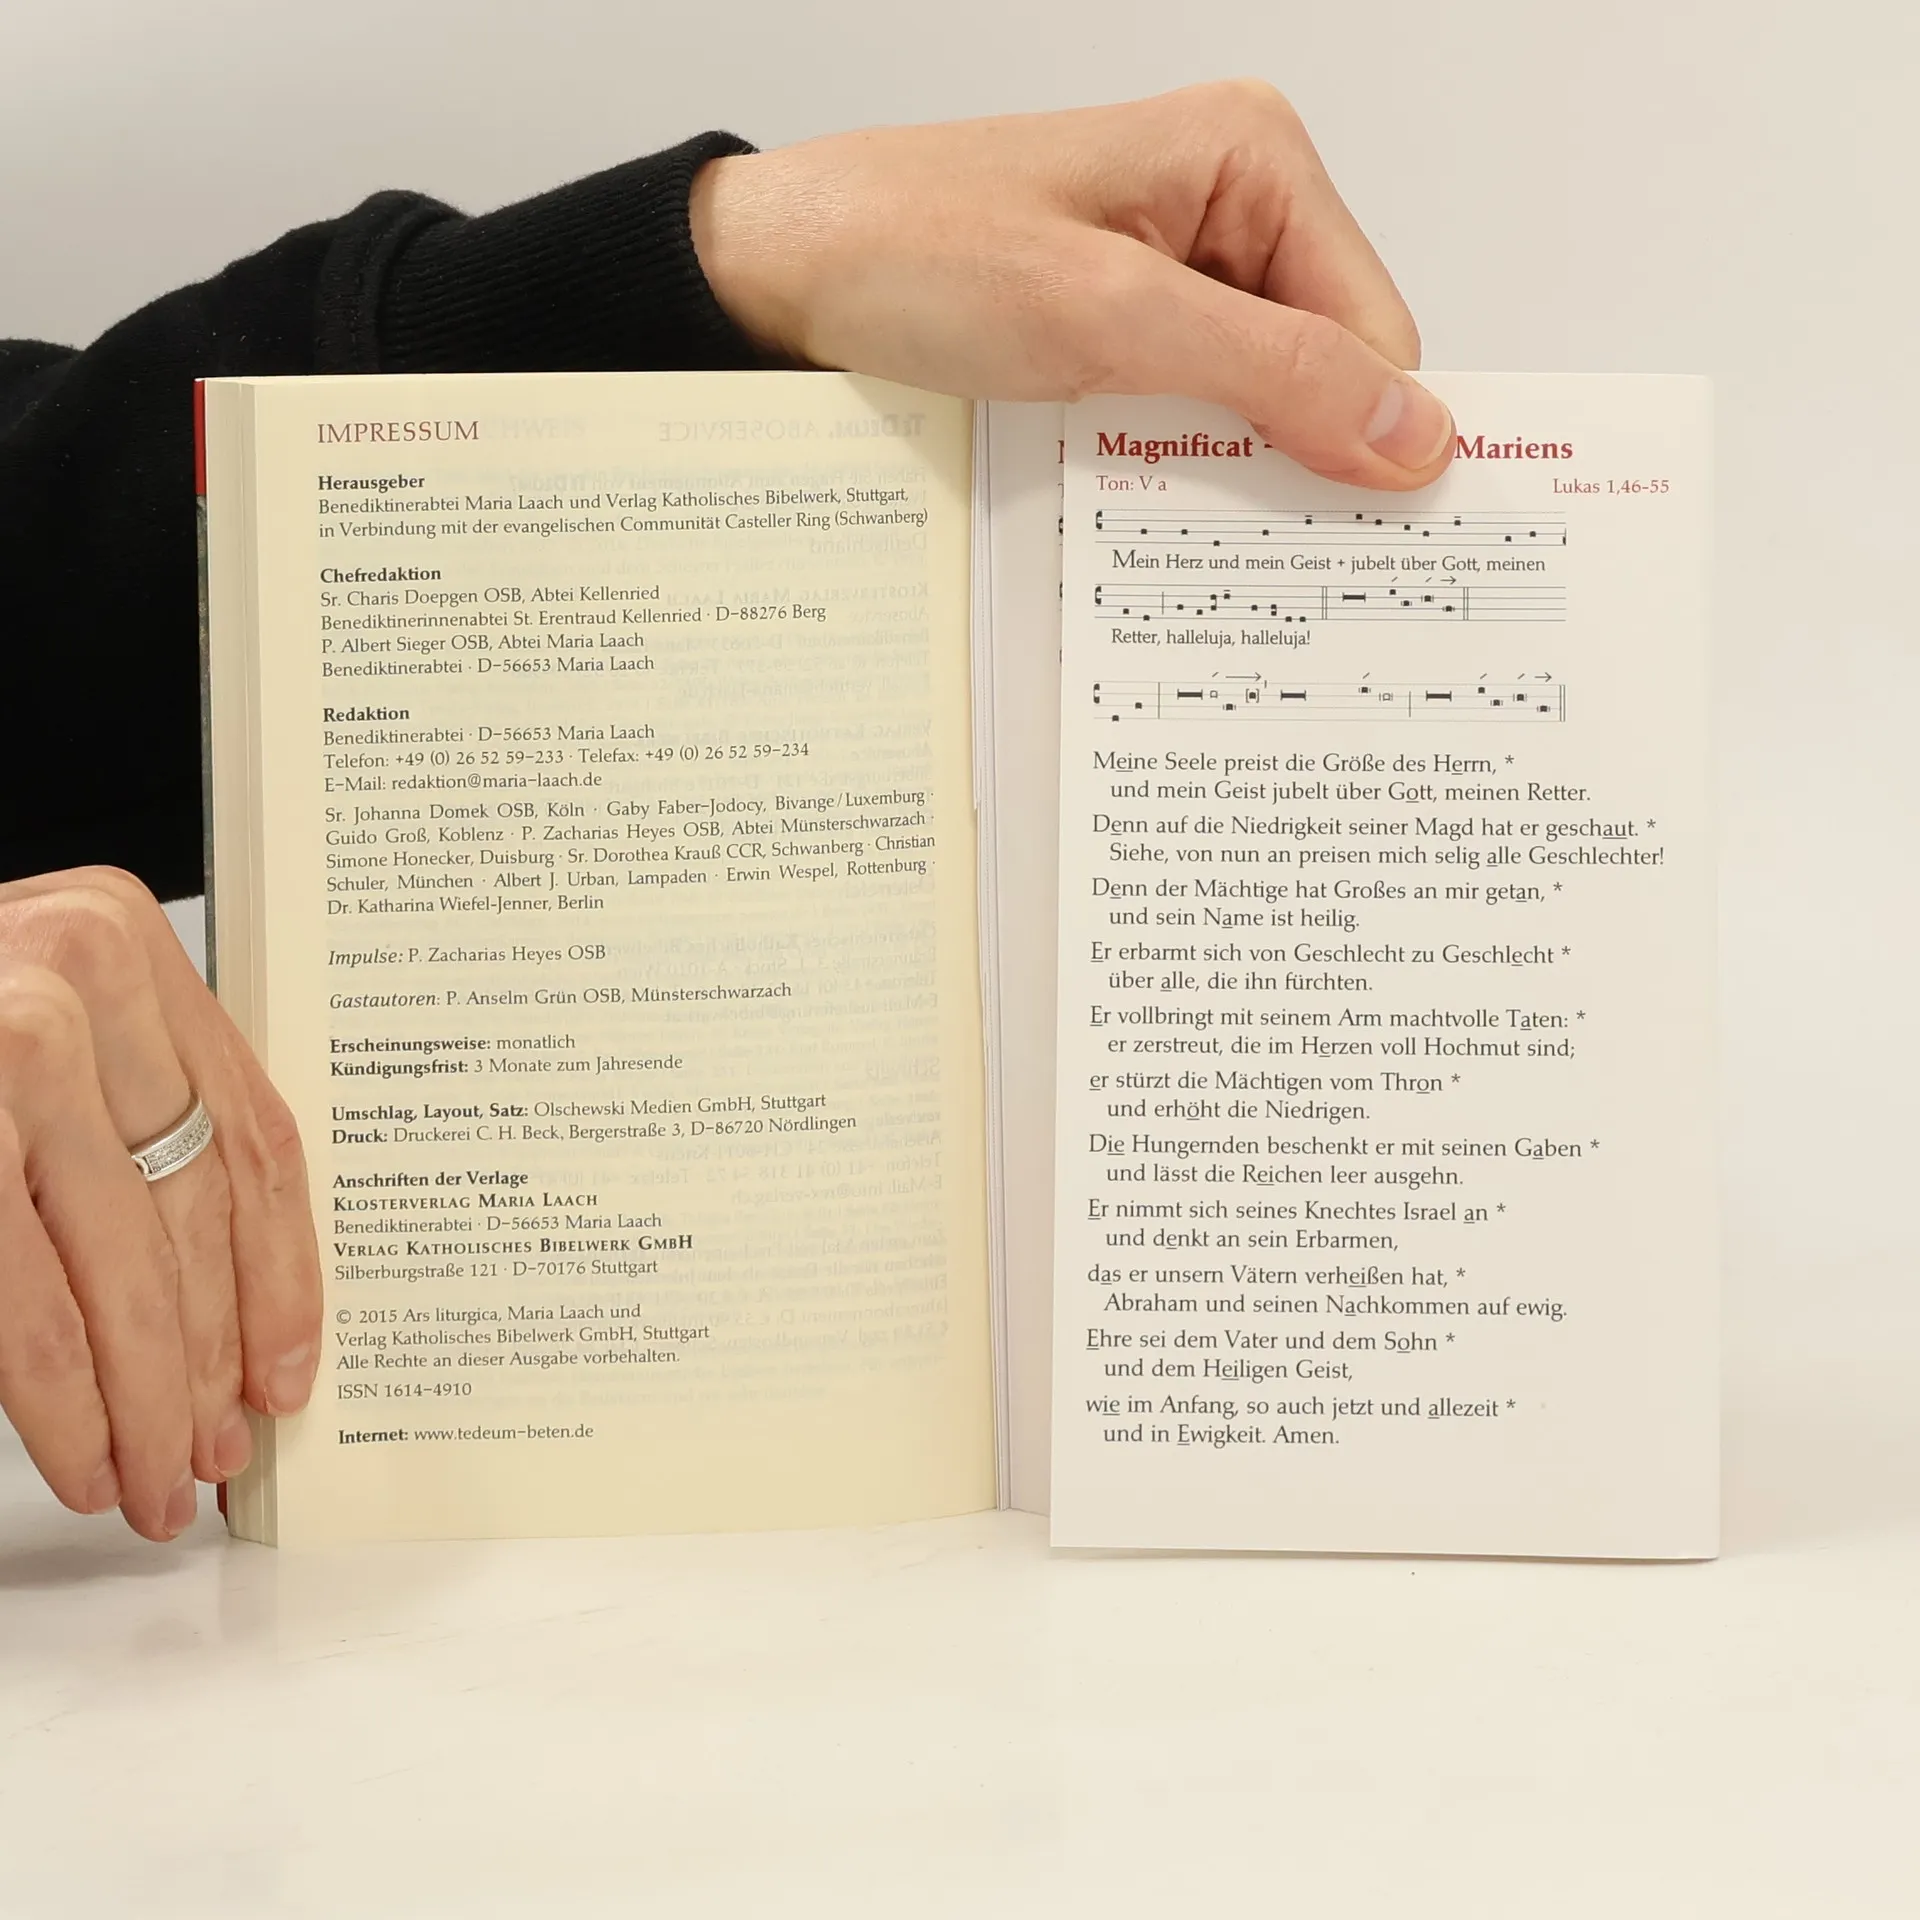 IMPRESSUM
Herausgeber
Benediktinerabtei Maria Laach und Verlag Katholisches Bibelwerk, Stuttgart,
in Verbindung mit der evangelischen Communität Casteller Ring (Schwanberg)
Chefredaktion
Sr. Charis Doepgen OSB, Abtei Kellenried
Benediktinerinnenabtei St. Erentraud Kellenried · D–88276 Berg
P. Albert Sieger OSB, Abtei Maria Laach
Benediktinerabtei · D–56653 Maria Laach
Redaktion
Benediktinerabtei · D–56653 Maria Laach
Telefon: +49 (0) 26 52 59–233 · Telefax: +49 (0) 26 52 59–234
E–Mail: redaktion@maria–laach.de
Sr. Johanna Domek OSB, Köln · Gaby Faber–Jodocy, Bivange/Luxemburg ·
Guido Groß, Koblenz · P. Zacharias Heyes OSB, Abtei Münsterschwarzach ·
Simone Honecker, Duisburg · Sr. Dorothea Krauß CCR, Schwanberg · Christian
Schuler, München · Albert J. Urban, Lampaden · Erwin Wespel, Rottenburg ·
Dr. Katharina Wiefel-Jenner, Berlin
Impulse: P. Zacharias Heyes OSB
Gastautoren: P. Anselm Grün OSB, Münsterschwarzach
Erscheinungsweise: monatlich
Kündigungsfrist: 3 Monate zum Jahresende
Umschlag, Layout, Satz: Olschewski Medien GmbH, Stuttgart
Druck: Druckerei C. H. Beck, Bergerstraße 3, D–86720 Nördlingen
Anschriften der Verlage
KLOSTERVERLAG MARIA LAACH
Benediktinerabtei · D–56653 Maria Laach
VERLAG KATHOLISCHES BIBELWERK GMBH
Silberburgstraße 121 · D–70176 Stuttgart
© 2015 Ars liturgica, Maria Laach und
Verlag Katholisches Bibelwerk GmbH, Stuttgart
Alle Rechte an dieser Ausgabe vorbehalten.
ISSN 1614–4910
Internet: www.tedeum–beten.de
Magnificat - Mariens
Ton: V a Lukas 1,46-55
Mein Herz und mein Geist + jubelt über Gott, meinen
Retter, halleluja, halleluja!
Meine Seele preist die Größe des Herrn, *
und mein Geist jubelt über Gott, meinen Retter.
Denn auf die Niedrigkeit seiner Magd hat er geschaut. *
Siehe, von nun an preisen mich selig alle Geschlechter!
Denn der Mächtige hat Großes an mir getan, *
und sein Name ist heilig.
Er erbarmt sich von Geschlecht zu Geschlecht *
über alle, die ihn fürchten.
Er vollbringt mit seinem Arm machtvolle Taten: *
er zerstreut, die im Herzen voll Hochmut sind;
er stürzt die Mächtigen vom Thron *
und erhöht die Niedrigen.
Die Hungernden beschenkt er mit seinen Gaben *
und lässt die Reichen leer ausgehn.
Er nimmt sich seines Knechtes Israel an *
und denkt an sein Erbarmen,
das er unsern Vätern verheißen hat, *
Abraham und seinen Nachkommen auf ewig.
Ehre sei dem Vater und dem Sohn *
und dem Heiligen Geist,
wie im Anfang, so auch jetzt und allezeit *
und in Ewigkeit. Amen.